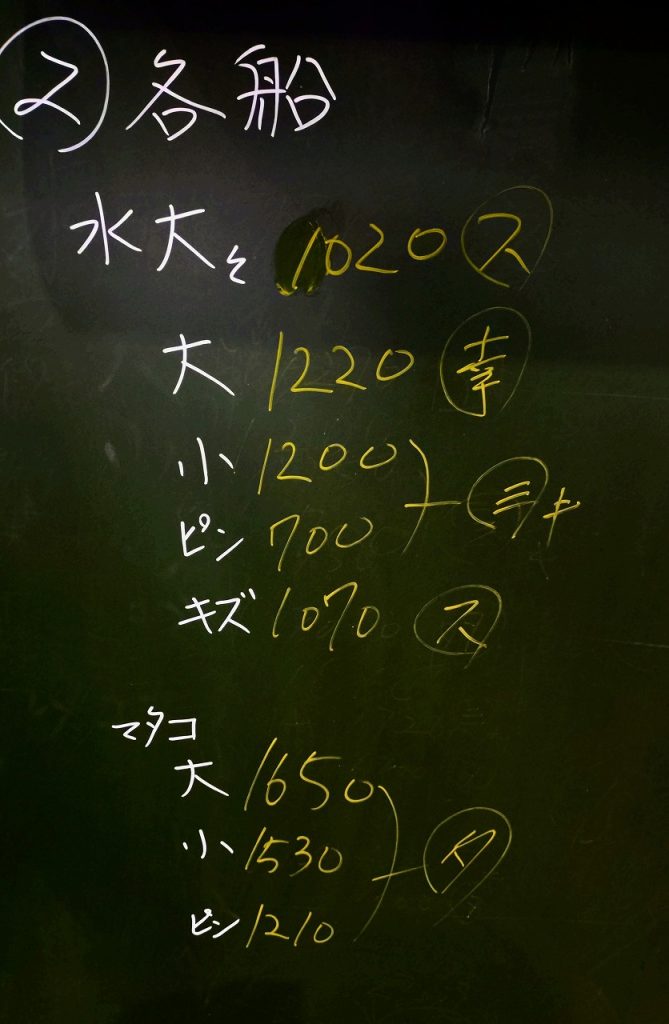 ② 各船
水大そ 1020 ス
大 1220 幸
小 1200
ピン 700 三キ
キズ 1070 ス
マタコ
大 1650
小 1530
ピン 1210